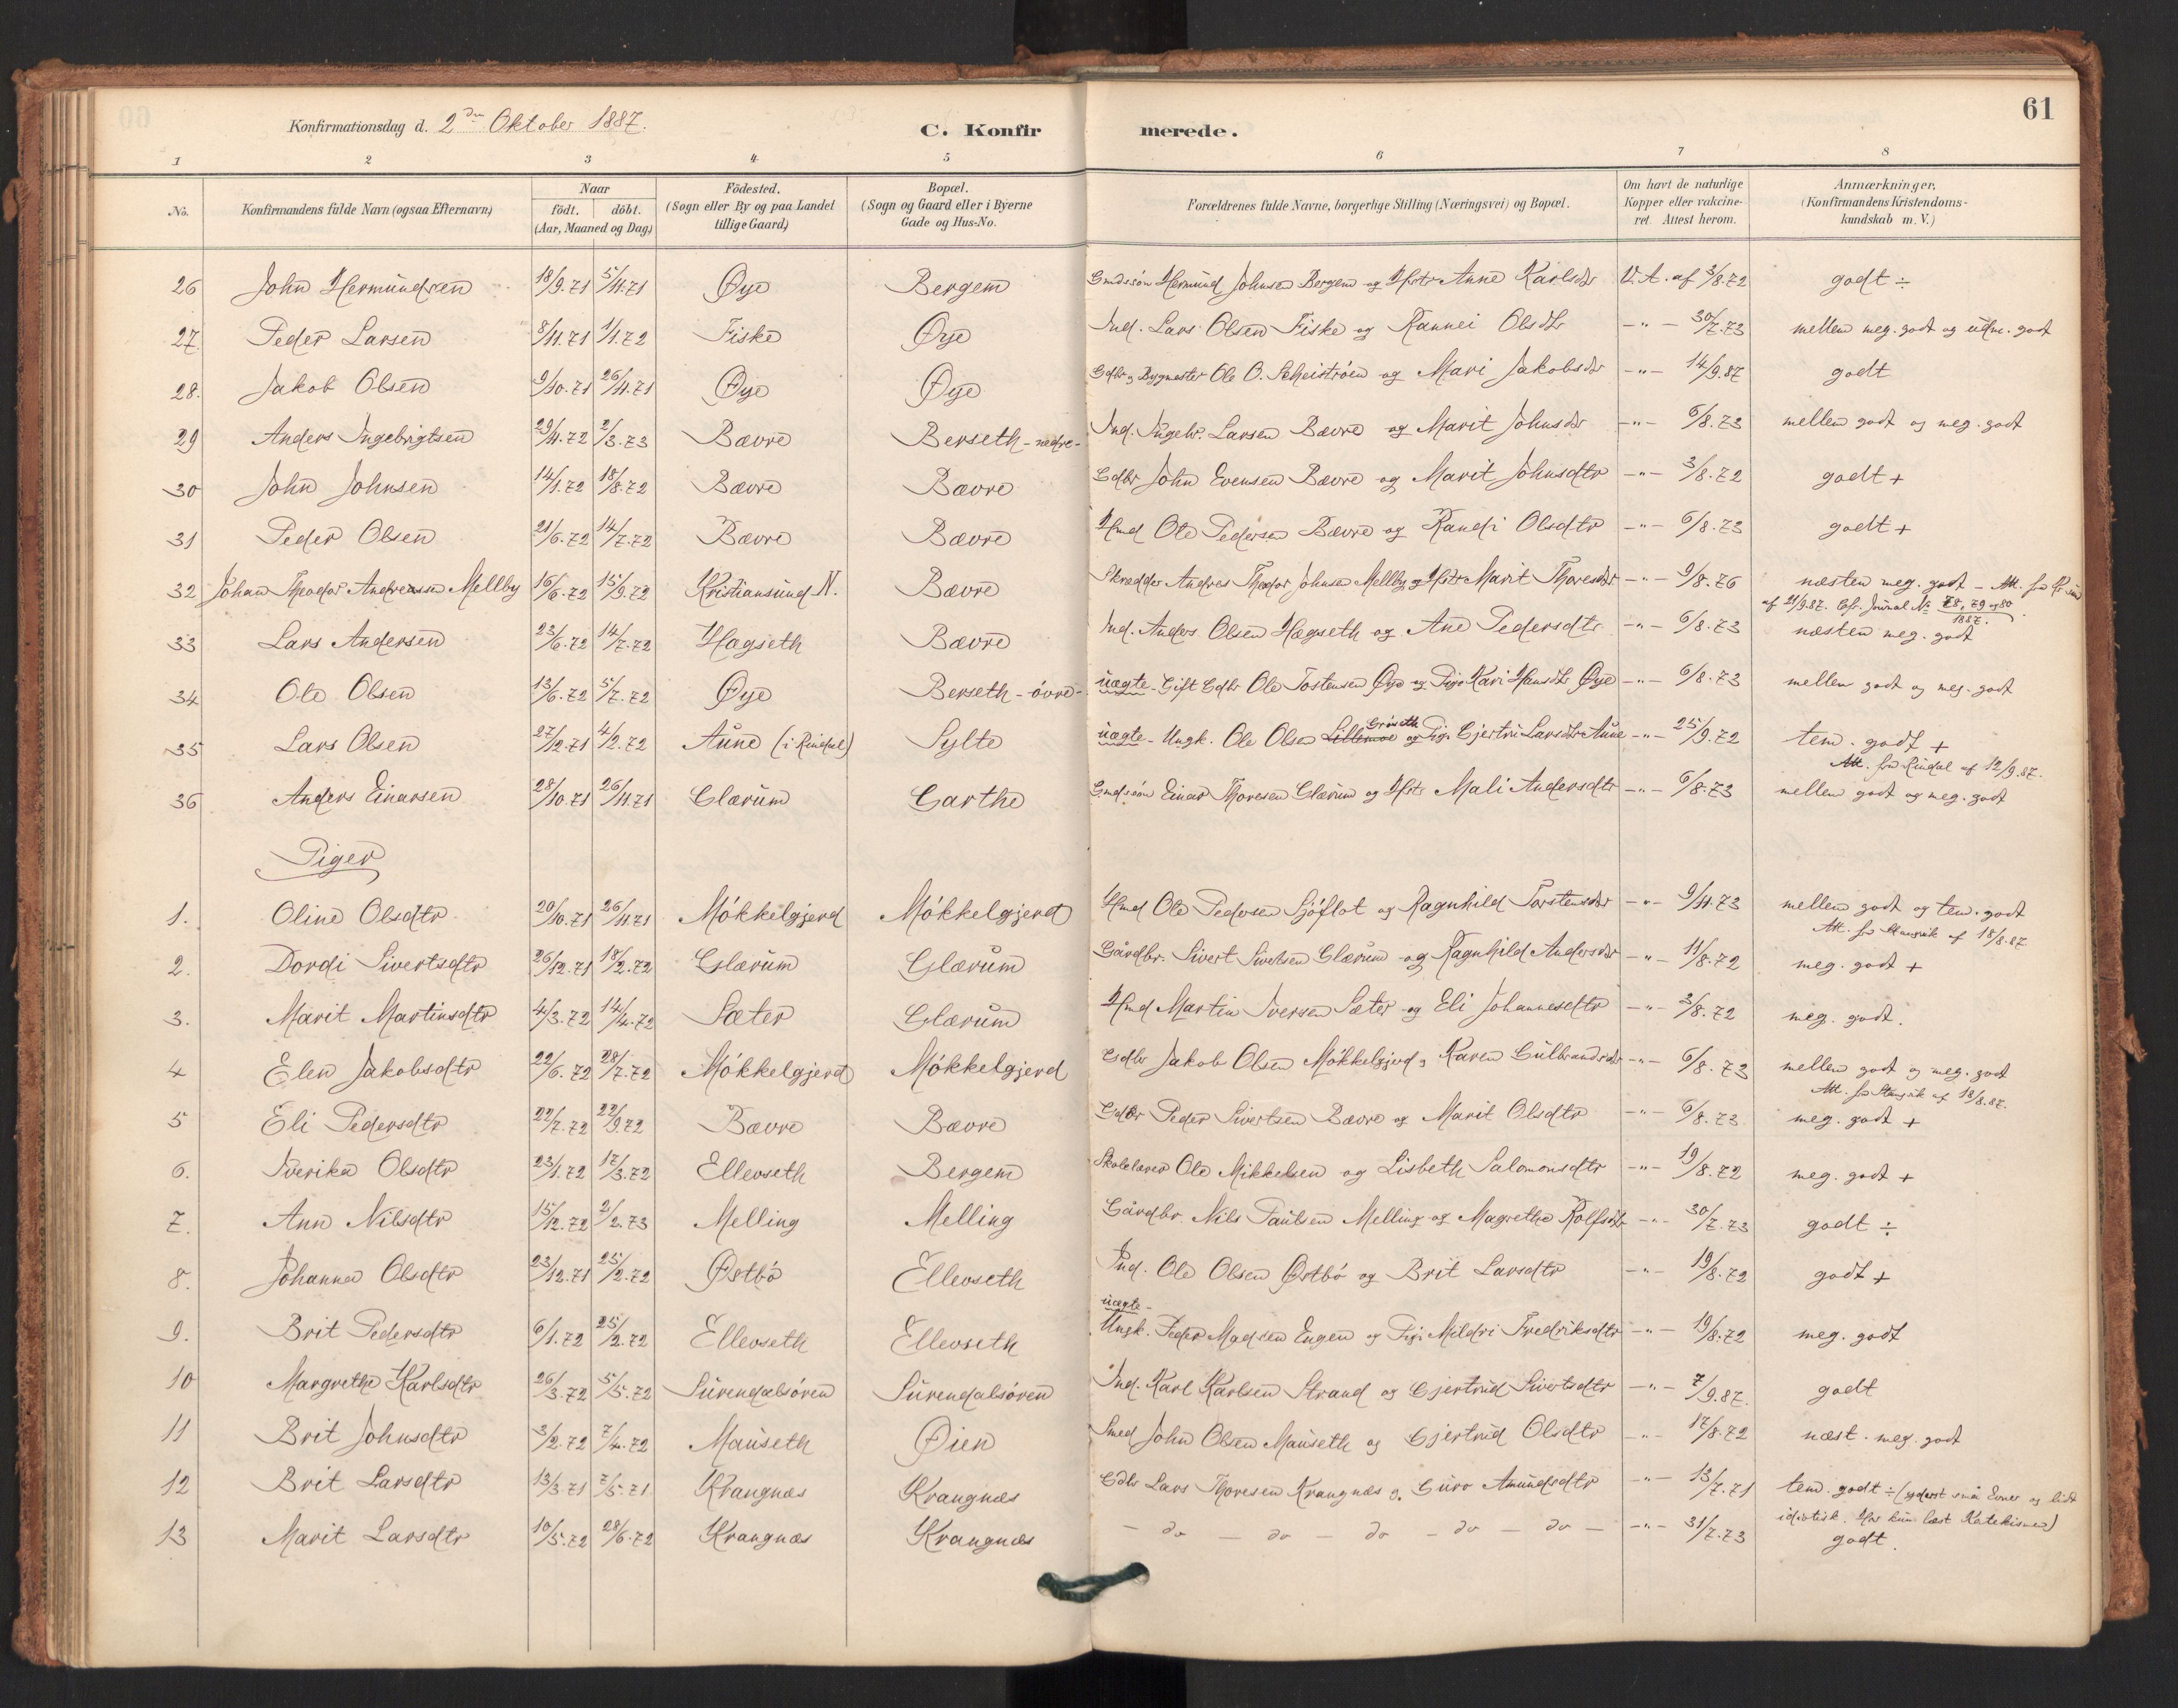 61
Konfirmationsdag d. 2den Oktober 1887.
C. Konfirmerede.
1 2 3 4 5 6 7 8
No. Konfirmandens fulde Navn (ogsaa Efternavn) Naar födt. döbt. (Aar, Maaned og Dag) Födested. (Sogn eller By og paa Landet tillige Gaard) Bopæl. (Sogn og Gaard eller i Byerne Gade og Hus-No. Forældrenes fulde Navne, borgerlige Stilling (Næringsvei) og Bopæl. Om havt de naturlige Kopper eller vakcineret. Attest herom. Anmærkninger. (Konfirmandens Kristendomskundskab m. V.)
26 John Hermundsen 18/9.71 5/11.71 Øye Bergem Gmdsön Hermund Johnsen Bergem og Hstr Anne Karlsdtr V. A. af 3/8.72 godt ÷
27. Peder Larsen 8/11.71 1/1.72 Fiske Øye Ind. Lars Olsen Fiske og Rannei Olsdtr -"- 30/7.73 mellem meg. godt og udm. godt
28. Jakob Olsen 9/10.71 26/11.71 Øye Øye Gdbr og Bygmester Ole O. Scheiströen og Mari Jakobsdtr -"- 14/9.87 godt
29 Anders Ingebrigtsen 29/11.72 2/3.73 Bævre Berseth-nedre- Ind. Ingebr. Larsen Bævre og Marit Johnsdtr -"- 6/8.73 mellem godt og meg. godt
30 John Johnsen 14/1.72 18/8.72 Bævre Bævre Gdbr John Evensen Bævre og Marit Johnsdtr -"- 3/8.72 godt +
31 Peder Olsen 21/6.72 14/7.72 Bævre Bævre Hmd Ole Pedersen Bævre og Randi Olsdtr -"- 6/8.73 godt +
32 Johan Theodor Andreassen Mellby 16/6.72 15/9.72 Kristiansund N. Bævre Skrædder Andreas Theodor Johnsen Mellby og Hstr Marit Thoresdtr -"- 9/8.76 næsten meg. godt - Att. fra Kr.sund
af 21/9.87. Cfr. Journal No 78, 79 og 80 1887.
33 Lars Andersen 23/6.72 14/7.72 Hægseth Bævre Ind. Anders Olsen Hægseth og Ane Pedersdtr -"- 6/8.73 næsten meg. godt
34 Ole Olsen 13/6.72 5/7.72 Øye Berseth-övre- uægte - Gift Gdbr Ole Tostensen Øye og Pige Kari Hansdtr Øye -"- 6/8.73 mellem godt og meg. godt
35 Lars Olsen 27/12.71 4/2.72 Aune (i Rindal) Sylte uægte - Ungk. Ole Olsen Lillemoe Gröseth og Pige Gjertri Larsdtr Aune -"- 25/9.72 tem. godt +
Att. fra Rindal af 12/9.87.
36 Anders Einarsen 28/10.71 26/11.71 Glærum Garthe Gmdsön Einar Thoresen Glærum og Hstr Mali Andersdtr -"- 6/8.73 mellem godt og meg. godt
Piger
1. Oline Olsdtr 20/10.71 26/11.71 Mökkelgjerd Mökkelgjerd Hmd Ole Pedersen Sjöflot og Ragnhild Torstensdtr -"- 9/11.73 mellem godt og tem. godt
Att. fra Stangvik af 18/8.87
2. Dordi Sivertsdtr 26/12.71 18/2.72 Glærum Glærum Gårdbr. Sivert Sivertsen Glærum og Ragnhild Andersdtr -"- 11/8.72 meg. godt +
3. Marit Martinsdtr 4/3.72 14/4.72 Sæter Glærum Hmd Martin Iversen Sæter og Eli Johannesdtr -"- 3/8.72 meg. godt.
4 Elen Jakobsdtr 22/6.72 28/7.72 Mökkelgjerd Mökkelgjerd Gdbr Jakob Olsen Mökkelgjerd og Karen Gulbrandsdtr -"- 6/8.73 mellem godt og meg. godt
Att. fra Stangvik af 18/8.87.
5 Eli Pedersdtr 22/7.72 22/9.72 Bævre Bævre Gdbr Peder Sivertsen Bævre og Marit Olsdtr -"- 6/8.73 meg. godt +
6. Iverika Olsdtr 23/1.72 17/3.72 Ellevseth Bergem Skolelærer Ole Mikkelsen og Lisbeth Salomonsdtr -"- 19/8.72 meg. godt +
7. Ann Nilsdtr 15/12.72 2/2.73 Melling Melling Gårdbr. Nils Paulsen Melling og Magrethe Rolfsdtr -"- 30/7.73 godt ÷
8. Johanna Olsdtr 23/12.71 25/2.72 Østbö Ellevseth Ind. Ole Olsen Østbö og Brit Larsdtr -"- 19/8.72 godt +
9. Brit Pedersdtr 6/1.72 25/2.72 Ellevseth Ellevseth uægte - Ungk. Peder Madsen Engen og Pige Mildri Fredriksdtr -"- 19/8.72 meg. godt
10 Margrethe Karlsdtr 26/3.72 5/5.72 Surendalsören Surendalsören Ind. Karl Karlsen Strand og Gjertrud Sivertsdtr -"- 7/9.87. godt
11 Brit Johnsdtr 3/2.72 7/4.72 Mauseth Øien Smed John Olsen Mauseth og Gjertrud Olsdtr -"- 17/8.72 næst. meg. godt
12 Brit Larsdtr 13/3.71 7/5.71 Krangnæs Krangnæs Gdbr Lars Thoresen Krangnæs og Guro Amundsdtr -"- 13/7.71 tem. godt ÷ (yderst små Evner og lidt
idiotisk. Har kun læst Katekismen)
13 Marit Larsdtr 10/5.72 28/6.72 Krangnæs Krangnæs - do - do - do - do - do - -"- 31/7.73 godt.